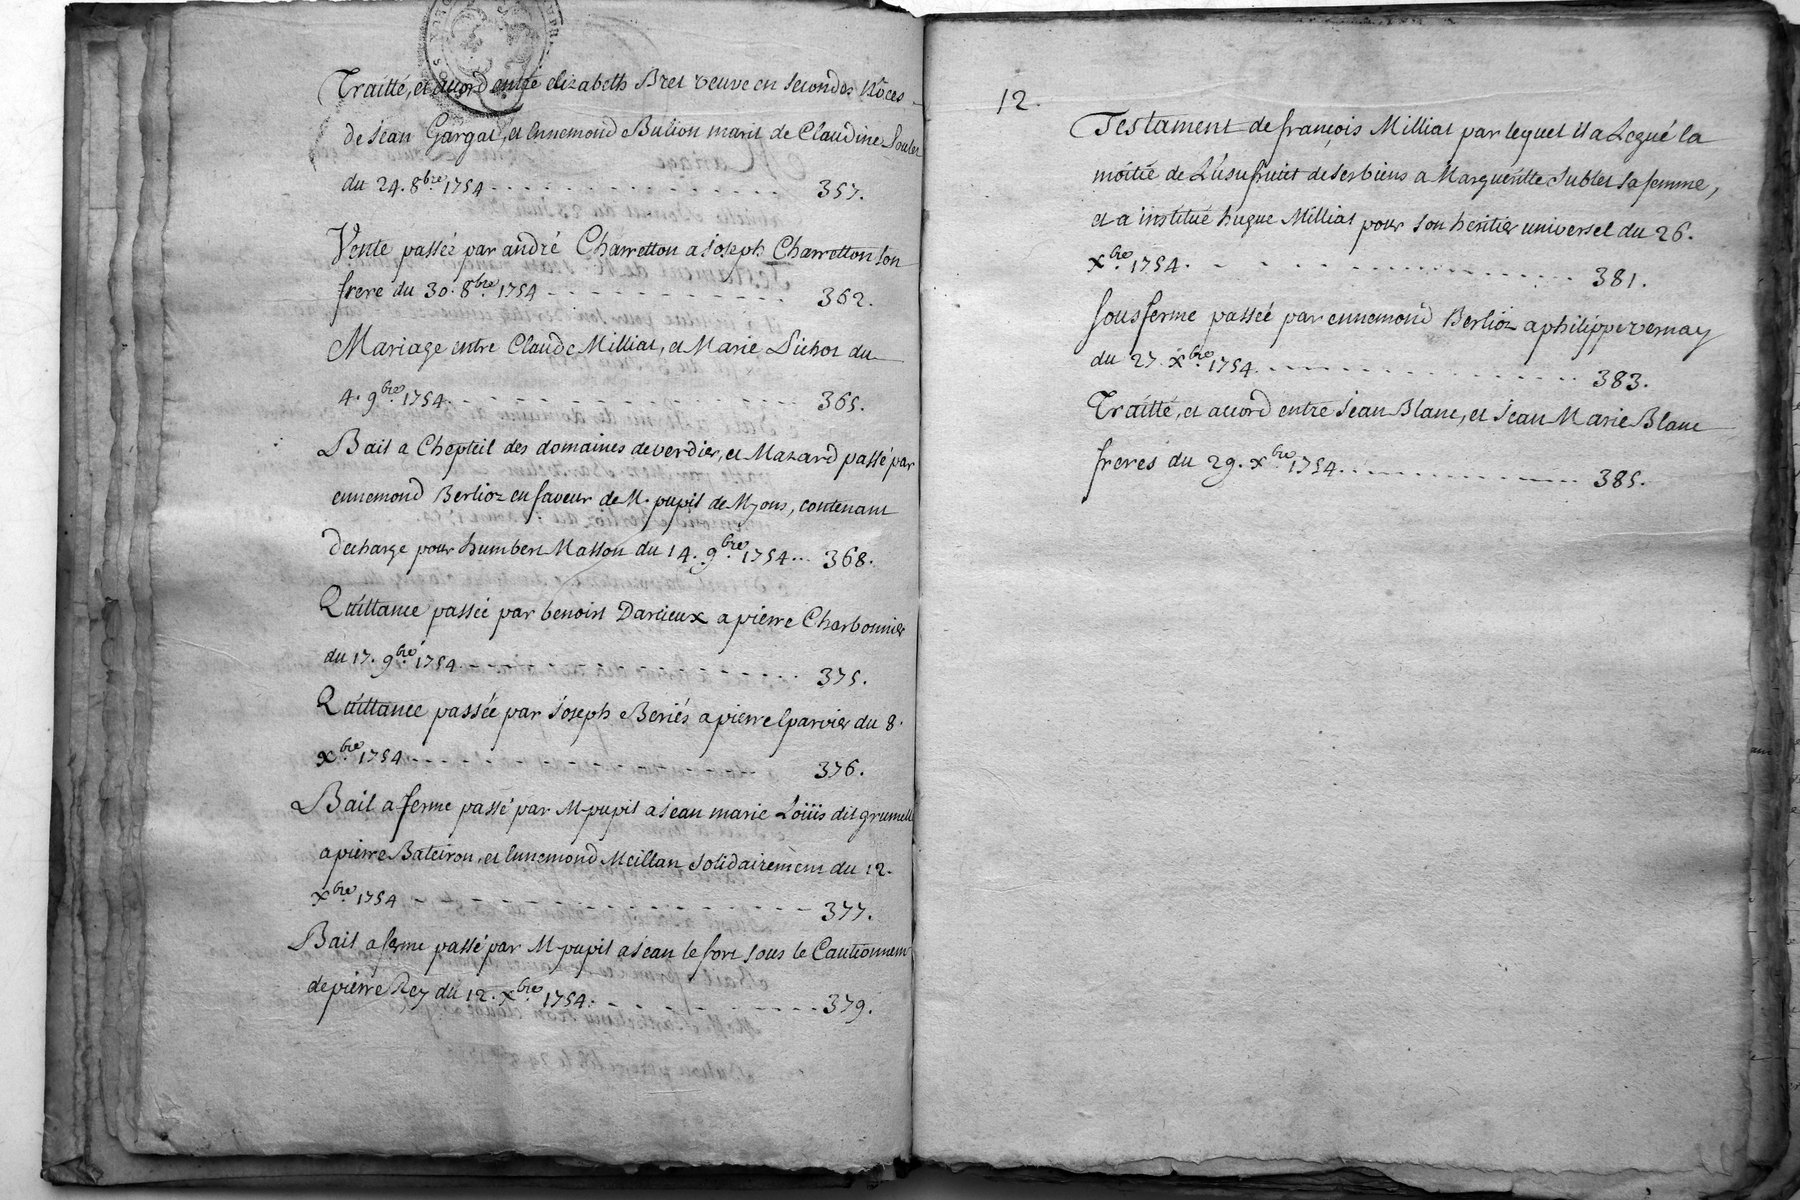 Traitté, et accord entre elizabeth Bret veuve en secondes Noces
de Jean Gargat, et Ennemond Bulion marit de Claudine Soulet
du 24. 8bre. 1754 - - - - - - - - - - - - - - - - 357.
Vente passée par andré Charretton a Joseph Charretton son
frere du 30. 8bre. 1754 - - - - - - - - - - - - 362.
Mariage entre Claude Milliat, et Marie Pichot du
4. 9bre. 1754. - - - - - - - - - - - - - - - - 365.
Bail a Chepteil des domaines de verdier, et Mazard passé par
ennemond Berlioz en faveur de M. pupil de Myons, contenant
decharge pour humbert Masson du 14. 9bre. 1754... 368.
Quittance passée par benoist Darcieux a pierre Charbonnier
du 17. 9bre. 1754. - - - - - - - - - - - - 375.
Quittance passée par Joseph Beriés a pierre Eparvier du 8.
xbre. 1754 - - - - - - - - - - - - - - - - 376.
Bail a ferme passé par M. pupil a Jean marie Loüis dit grumell
a pierre Bateiron, et Ennemond Meillan solidairement du 12.
xbre. 1754 - - - - - - - - - - - - - - - - 377.
Bail a ferme passé par M. pupil a Jean le fort sous le Cautionnem
de pierre Rey du 12. xbre. 1754. - - - - - - - - - - - 379.
12.
Testament de françois Milliat par lequel il a Legué la
moitié de L'usufruit de ses biens a Marguerite Sublet sa femme,
et a institué hugue Milliat pour son heritier universel du 26.
xbre. 1754. - - - - - - - - - - - - - - - - 381.
Sousferme passée par ennemond Berlioz a philippe vernay
du 27. xbre. 1754. - - - - - - - - - - - - - - - - 383.
Traitté, et accord entre Jean Blanc, et Jean Marie Blanc
freres du 29. xbre. 1754. - - - - - - - - - - - - 385.